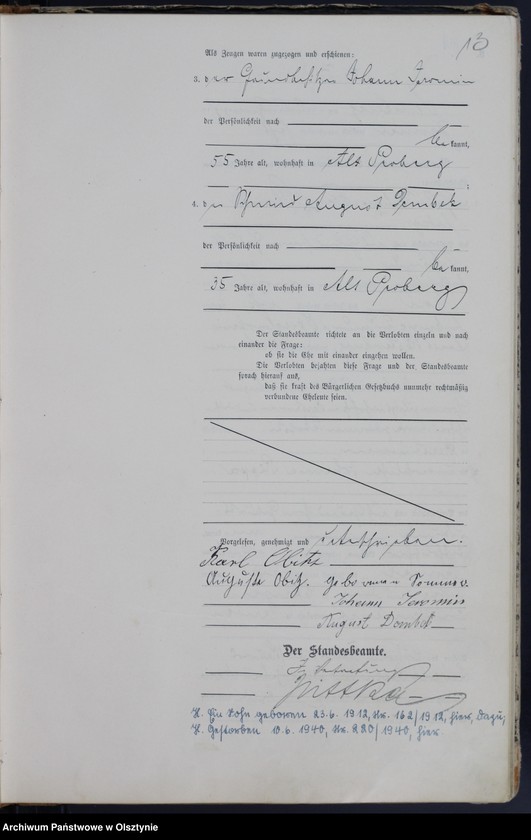 13
Als Zeugen waren zugezogen und erschienen:
3. der Grundbesitzer Johann Jeromin
der Persönlichkeit nach
be kannt,
55 Jahre alt, wohnhaft in Alt Proberg
;
4. der Schmied August Dembek
der Persönlichkeit nach
be kannt,
35 Jahre alt, wohnhaft in Alt Proberg
Der Standesbeamte richtete an die Verlobten einzeln und nach
einander die Frage:
ob sie die Ehe mit einander eingehen wollen.
Die Verlobten bejahten diese Frage und der Standesbeamte
sprach hierauf aus,
daß sie kraft des Bürgerlichen Gesetzbuchs nunmehr rechtmäßig
verbundene Eheleute seien.
Vorgelesen, genehmigt und unterschrieben.
Karl Obitz
Auguste Obitz. geborenen
Johann Jeromin
August Dembek
Der Standesbeamte.
In Vertretung
Ein Sohn geboren 23.6.1912, Nr. 162/1912, hier,
Gestorben 10.6.1940, Nr. 220/1940, hier
Archiwum Państwowe w Olsztynie